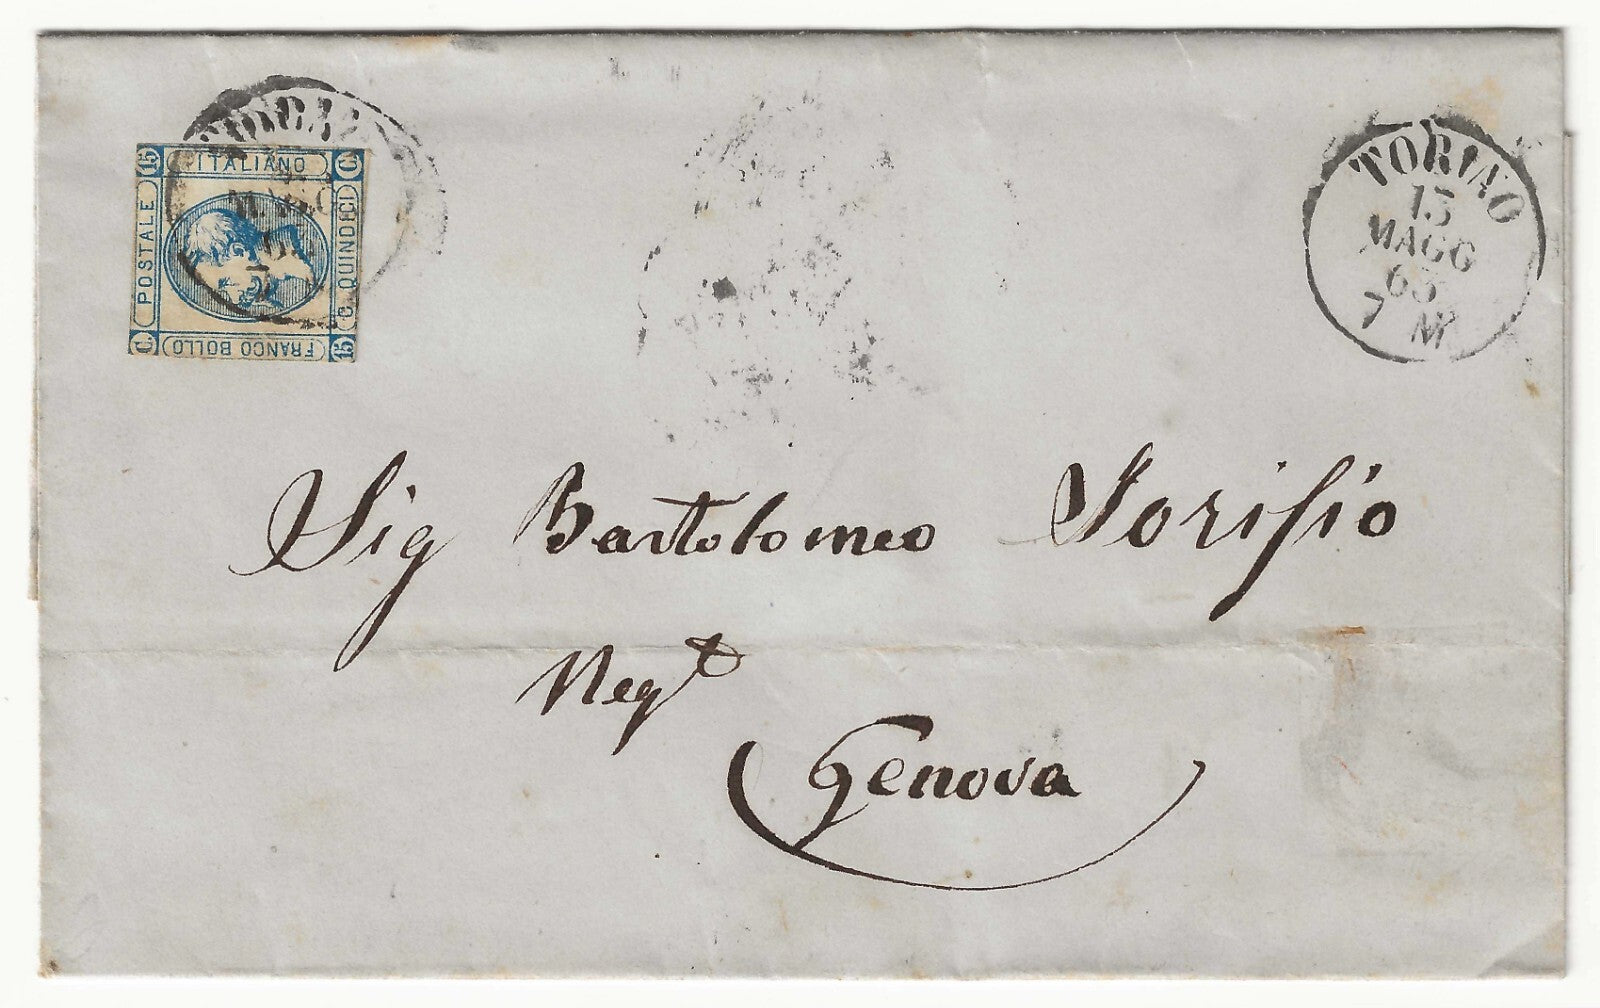 15 ITALIANO C.
POSTALE
C. QUINDICI
C. FRANCO BOLLO 15
TORINO
13
MAGG
63
7 M
Sig Bartolomeo
Negt
Genova